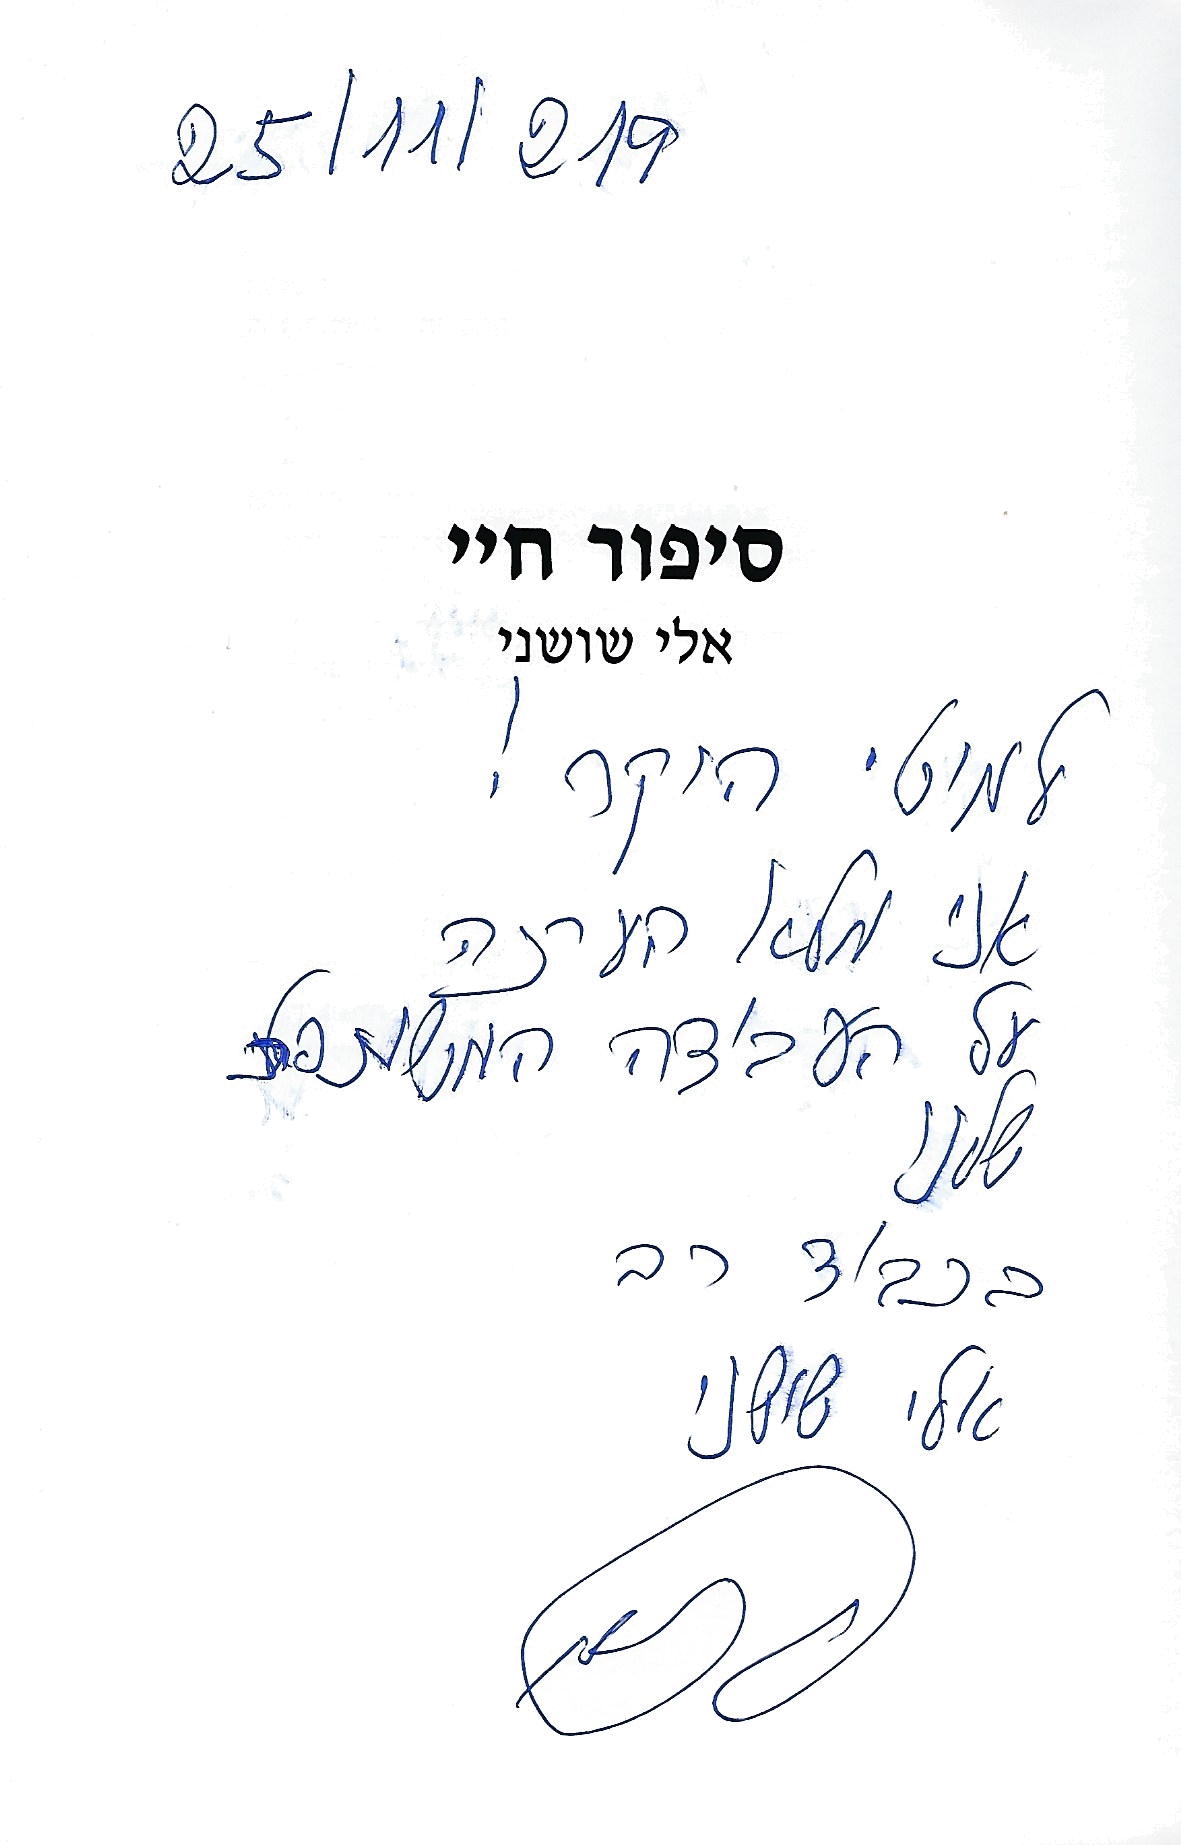 25/11/219
סיפור חיי
אלי שושני
למוטי היקר!
אני מלא הערכה
על העבודה המשותפת
שלנו
בכבוד רב
אלי שושני